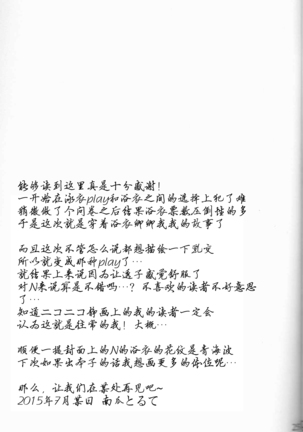 能够读到这里真是十分感谢!
一开始在泳衣play和浴衣之间的选择上犯了难
稍微做了个问卷之后结果浴衣票数压倒性的多
于是这次就是穿着浴衣卿卿我我的故事了
而且这次不管怎么说都想描绘一下乳交
所以就变成那种play了…
就结果上来说因为让透子感觉舒服了
对N来说算是不错吗…? 不喜欢的读者不好意思
了…
知道二コニコ静画上的我的读者一定会
认为这就是往常的我! 大概…
顺便一提封面上的N的浴衣的花纹是青海波
下次如果出本子的话我想画更多的体位呢…
那么, 让我们在某处再见吧~
2015年7月某日 南瓜とるて